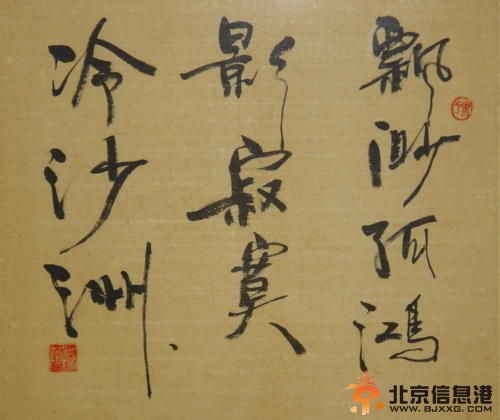 飘渺孤鸿
影寂寞
冷沙洲
北京信息港
WWW.BJXXG.COM